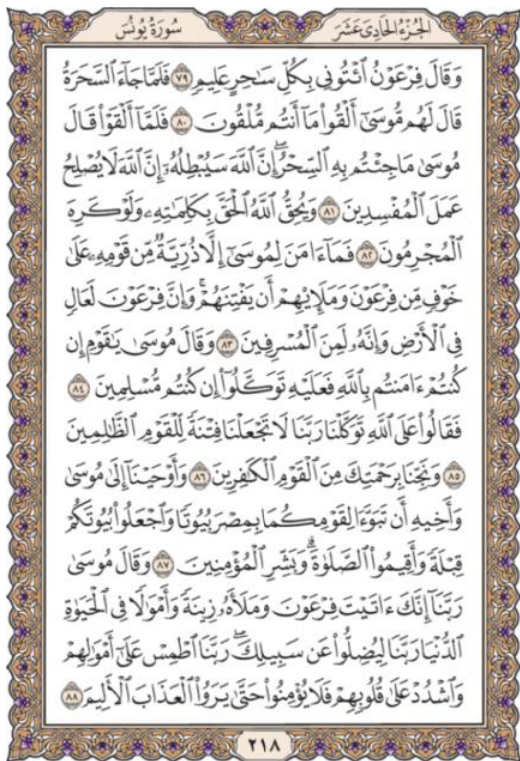 الجُزْءُ الحَادِي عَشَرَ سُورَةُ يُونُسَ
وَقَالَ فِرْعَوْنُ ٱئْتُونِى بِكُلِّ سَٰحِرٍ عَلِيمٍ ٧٩ فَلَمَّا جَآءَ ٱلسَّحَرَةُ
قَالَ لَهُم مُّوسَىٰٓ أَلْقُوا۟ مَآ أَنتُم مُّلْقُونَ ٨٠ فَلَمَّآ أَلْقَوْا۟ قَالَ
مُوسَىٰ مَا جِئْتُم بِهِ ٱلسِّحْرُ ۖ إِنَّ ٱللَّهَ سَيُبْطِلُهُۥٓ ۖ إِنَّ ٱللَّهَ لَا يُصْلِحُ
عَمَلَ ٱلْمُفْسِدِينَ ٨١ وَيُحِقُّ ٱللَّهُ ٱلْحَقَّ بِكَلِمَٰتِهِۦ وَلَوْ كَرِهَ
ٱلْمُجْرِمُونَ ٨٢ فَمَآ ءَامَنَ لِمُوسَىٰٓ إِلَّا ذُرِّيَّةٌ مِّن قَوْمِهِۦ عَلَىٰ
خَوْفٍ مِّن فِرْعَوْنَ وَمَلَإِي۟هِمْ أَن يَفْتِنَهُمْ ۚ وَإِنَّ فِرْعَوْنَ لَعَالٍ
فِى ٱلْأَرْضِ وَإِنَّهُۥ لَمِنَ ٱلْمُسْرِفِينَ ٨٣ وَقَالَ مُوسَىٰ يَٰقَوْمِ إِن
كُنتُمْ ءَامَنتُم بِٱللَّهِ فَعَلَيْهِ تَوَكَّلُوٓا۟ إِن كُنتُم مُّسْلِمِينَ ٨٤
فَقَالُوا۟ عَلَى ٱللَّهِ تَوَكَّلْنَا رَبَّنَا لَا تَجْعَلْنَا فِتْنَةً لِّلْقَوْمِ ٱلظَّٰلِمِينَ
٨٥ وَنَجِّنَا بِرَحْمَتِكَ مِنَ ٱلْقَوْمِ ٱلْكَٰفِرِينَ ٨٦ وَأَوْحَيْنَآ إِلَىٰ مُوسَىٰ
وَأَخِيهِ أَن تَبَوَّءَا لِقَوْمِكُمَا بِمِصْرَ بُيُوتًا وَٱجْعَلُوا۟ بُيُوتَكُمْ
قِبْلَةً وَأَقِيمُوا۟ ٱلصَّلَوٰةَ ۗ وَبَشِّرِ ٱلْمُؤْمِنِينَ ٨٧ وَقَالَ مُوسَىٰ
رَبَّنَآ إِنَّكَ ءَاتَيْتَ فِرْعَوْنَ وَمَلَأَهُۥ زِينَةً وَأَمْوَٰلًا فِى ٱلْحَيَوٰةِ
ٱلدُّنْيَا رَبَّنَا لِيُضِلُّوا۟ عَن سَبِيلِكَ ۖ رَبَّنَا ٱطْمِسْ عَلَىٰٓ أَمْوَٰلِهِمْ
وَٱشْدُدْ عَلَىٰ قُلُوبِهِمْ فَلَا يُؤْمِنُوا۟ حَتَّىٰ يَرَوُا۟ ٱلْعَذَابَ ٱلْأَلِيمَ ٨٨
٢١٨